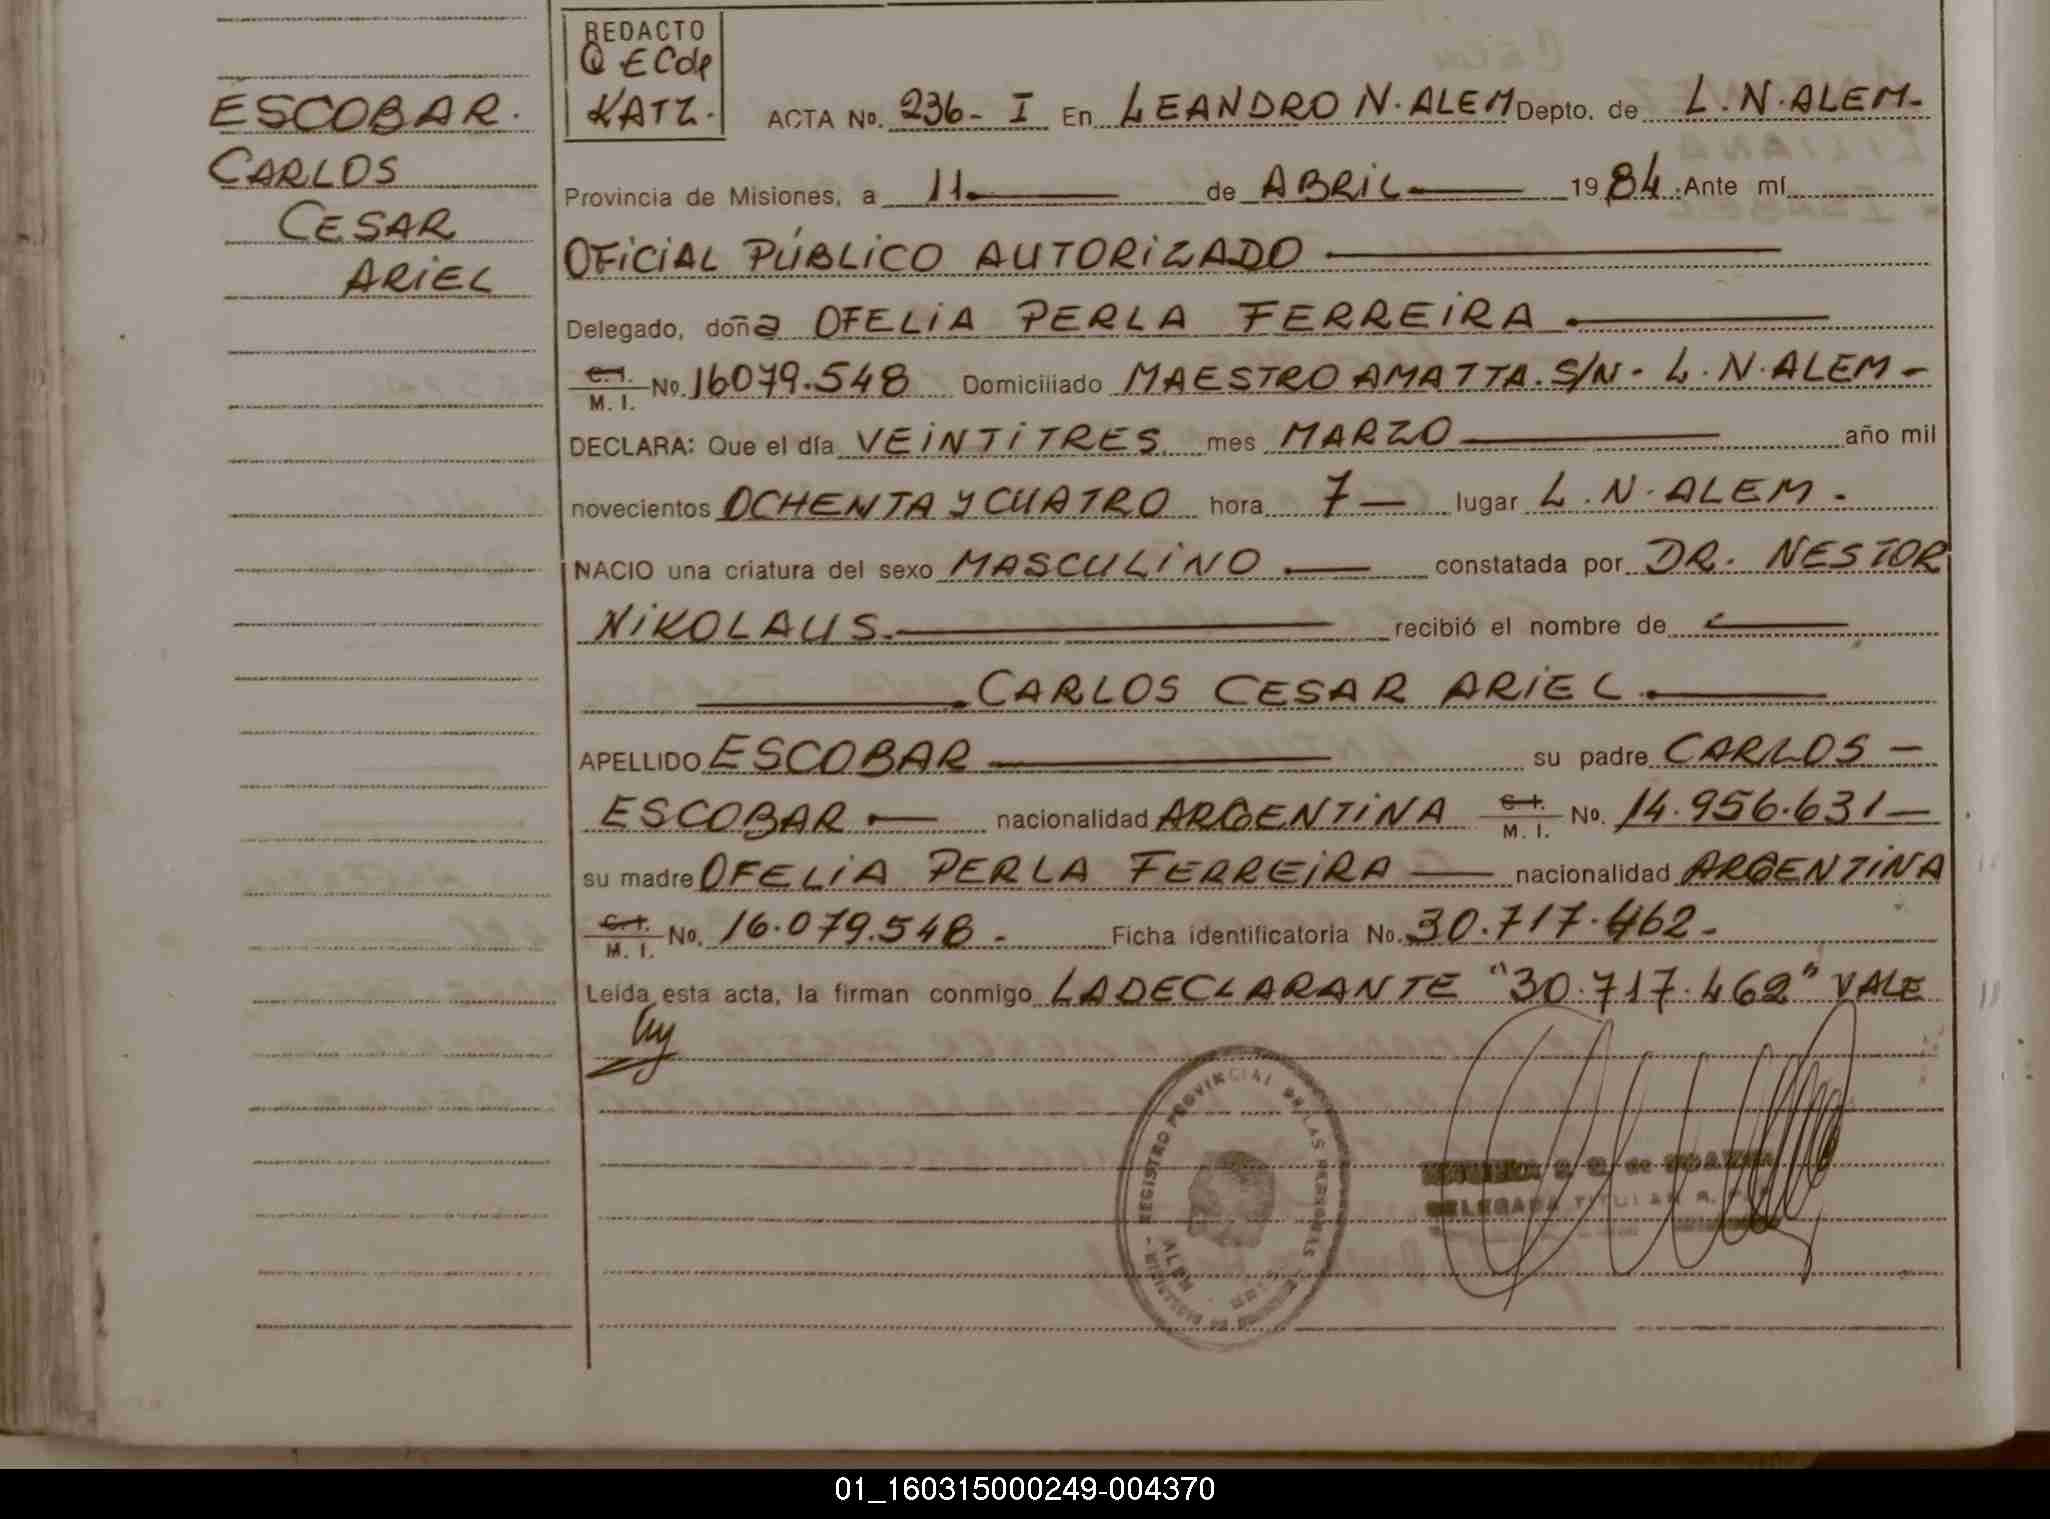 ESCOBAR.
CARLOS
CESAR
ARIEL
REDACTO
Q ECde
KATZ.
ACTA No. 236- I En LEANDRO N. ALEM Depto. de L. N. ALEM-
Provincia de Misiones, a 11 de ABRIL 1984. Ante mí
OFICIAL PÚBLICO AUTORIZADO
Delegado, doña OFELIA PERLA FERREIRA
C. I. / M. I. No. 16079.548 Domiciliado MAESTRO AMATTA. S/N- L. N. ALEM-
DECLARA: Que el día VEINTITRES mes MARZO año mil
novecientos OCHENTA Y CUATRO hora 7 — lugar L. N. ALEM.
NACIO una criatura del sexo MASCULINO constatada por DR. NESTOR
NIKOLAUS. recibió el nombre de
CARLOS CESAR ARIEL.
APELLIDO ESCOBAR su padre CARLOS —
ESCOBAR nacionalidad ARGENTINA C. I. / M. I. No. 14.956.631 —
su madre OFELIA PERLA FERREIRA nacionalidad ARGENTINA
C. I. / M. I. No. 16.079.548. Ficha identificatoria No. 30.717.462-
Leída esta acta, la firman conmigo LA DECLARANTE "30.717.462" VALE
REGISTRO PROVINCIAL DE LAS PERSONAS
ALEM
DELEGADA TITULAR
01_160315000249-004370